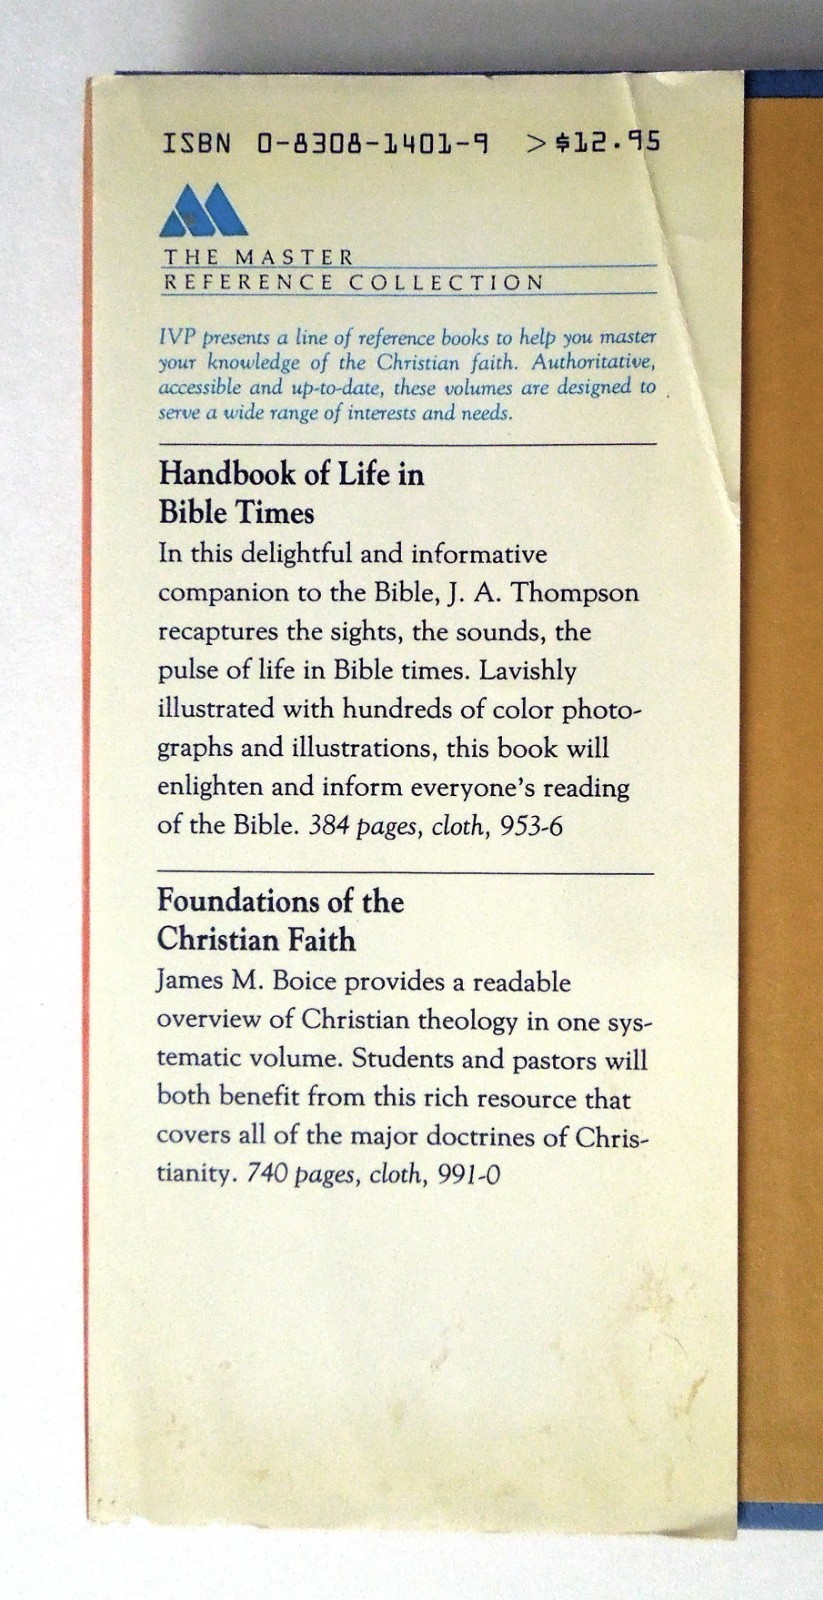 ISBN 0-8308-1401-9 >$12.95
THE MASTER
REFERENCE COLLECTION
IVP presents a line of reference books to help you master
your knowledge of the Christian faith. Authoritative,
accessible and up-to-date, these volumes are designed to
serve a wide range of interests and needs.
Handbook of Life in
Bible Times
In this delightful and informative
companion to the Bible, J. A. Thompson
recaptures the sights, the sounds, the
pulse of life in Bible times. Lavishly
illustrated with hundreds of color photo-
graphs and illustrations, this book will
enlighten and inform everyone's reading
of the Bible. 384 pages, cloth, 953-6
Foundations of the
Christian Faith
James M. Boice provides a readable
overview of Christian theology in one sys-
tematic volume. Students and pastors will
both benefit from this rich resource that
covers all of the major doctrines of Chris-
tianity. 740 pages, cloth, 991-0